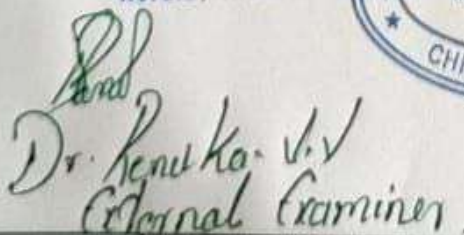 CHI
Dr. Renuka. V.V
External Examiner